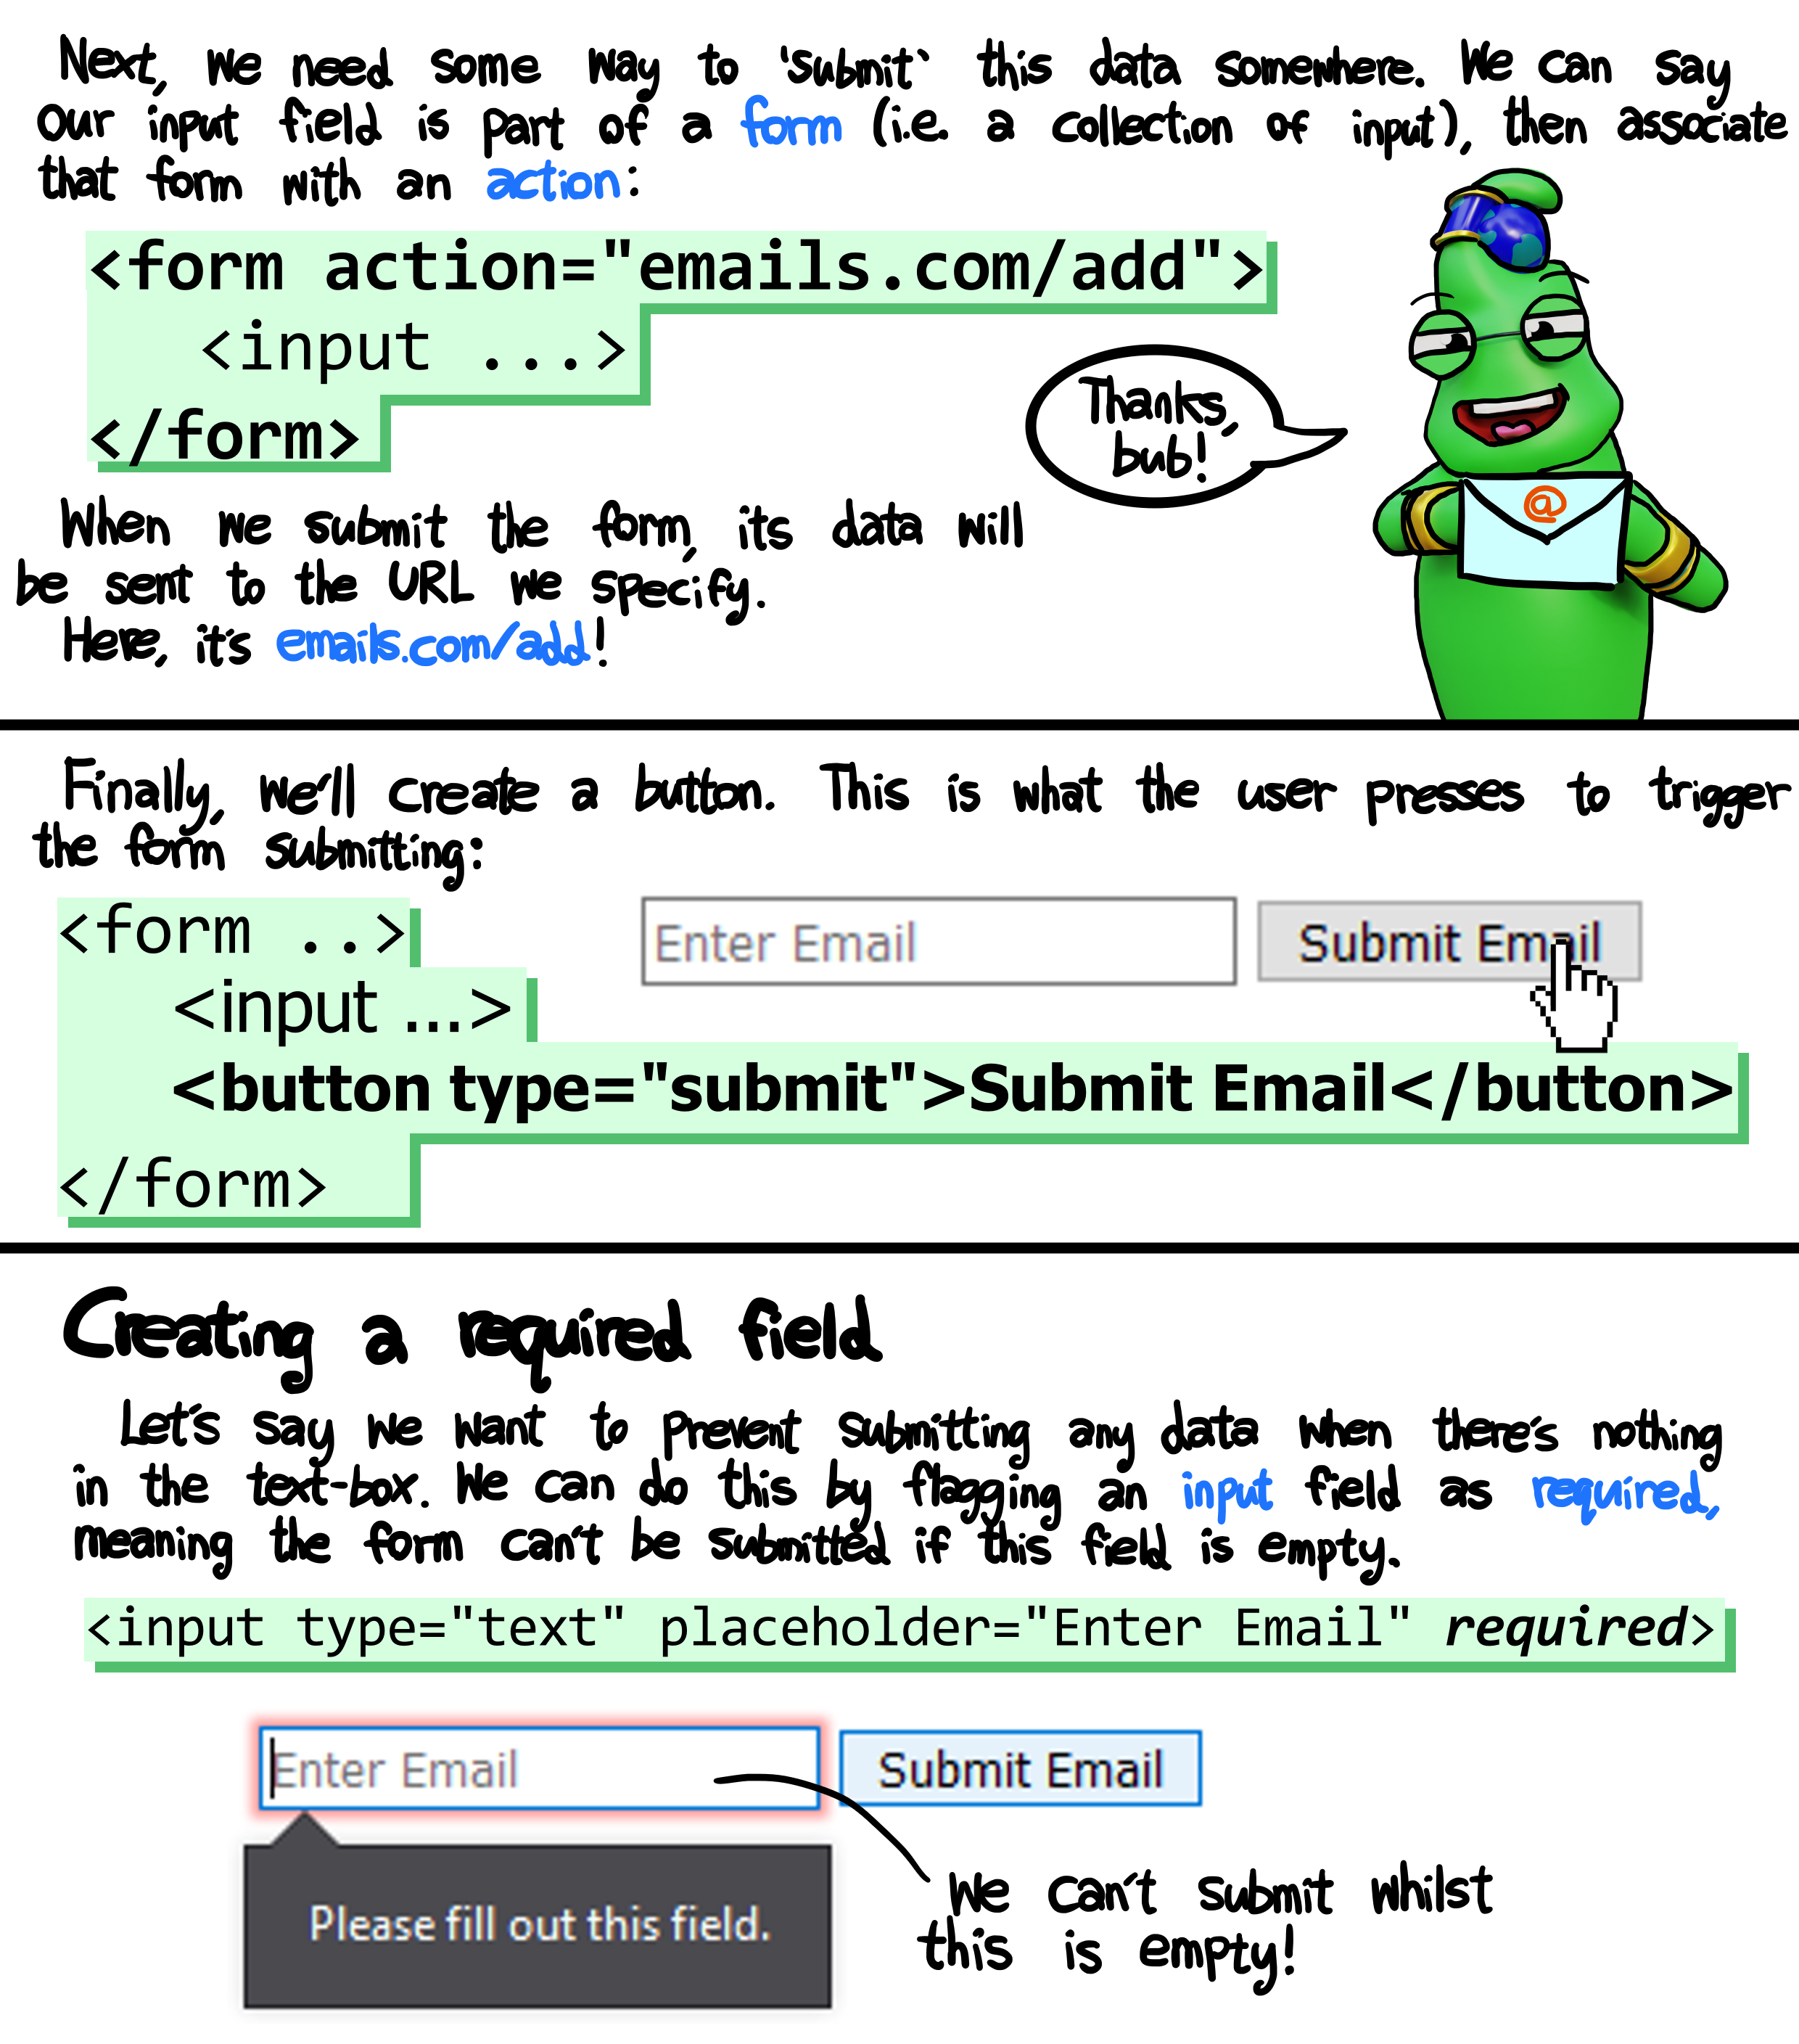 Next, we need some way to 'submit` this data somewhere. We can say
our input field is part of a form (i.e. a collection of input), then associate
that form with an action:
<form action="emails.com/add">
<input ...>
</form>
Thanks,
bub!
@
When we submit the form, its data will
be sent to the URL we specify.
Here, it's emails.com/add!
Finally, we'll create a button. This is what the user presses to trigger
the form submitting:
<form ..>
<input ...>
<button type="submit">Submit Email</button>
</form>
Enter Email
Submit Email
Creating a required field
Let's say we want to prevent submitting any data when there's nothing
in the text-box. We can do this by flagging an input field as required,
meaning the form can't be submitted if this field is empty.
<input type="text" placeholder="Enter Email" required>
Enter Email
Submit Email
Please fill out this field.
We can't submit whilst
this is empty!